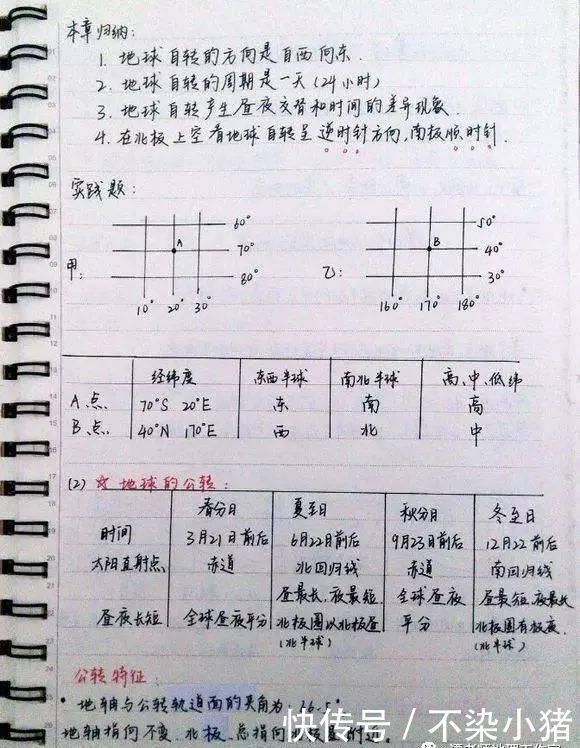 本章归纳:
1. 地球自转的方向是自西向东.
2. 地球自转的周期是一天(24小时)
3. 地球自转产生昼夜交替和时间的差异现象.
4. 在北极上空看地球自转呈逆时针方向,南极顺时针.
实践题:
甲:
A
60°
70°
80°
10° 20° 30°
乙:
B
50°
40°
30°
160° 170° 180°
经纬度 东西半球 南北半球 高、中、低纬
A点 70°S 20°E 东 南 高
B点 40°N 170°E 西 北 中
(2) ☆地球的公转:
春分日 夏至日 秋分日 冬至日
时间 3月21日前后 6月22日前后 9月23日前后 12月22前后
太阳直射点 赤道 北回归线 赤道 南回归线
昼最长,夜最短. 全球昼夜 昼最短,夜最长
昼夜长短 全球昼夜平分 北极圈以北极昼 平分 北极圈有极夜.
(北半球) (北半球)
公转特征:
• 地轴与公转轨道面的夹角为:
地轴指向不变.北极.总指向
快传号 / 不染小猪